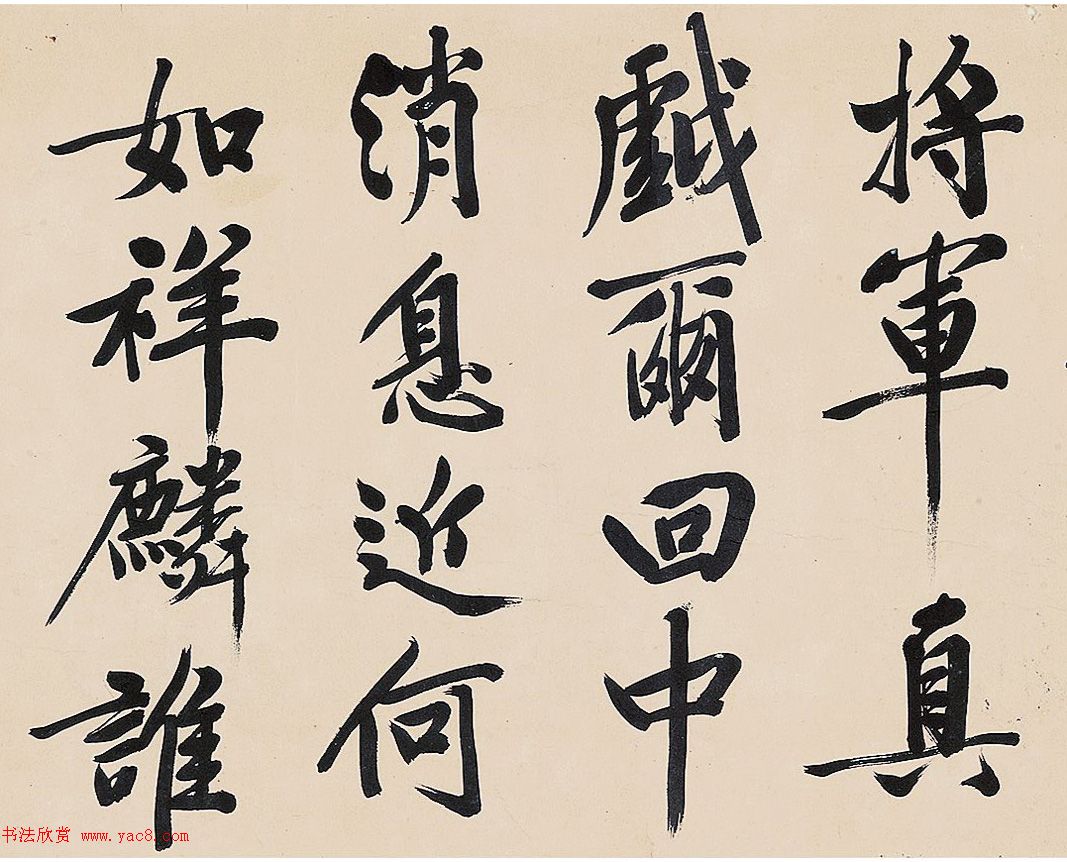 将軍真
戱爾回中
消息近何
如祥麟誰
书法欣赏 www.yac8.com